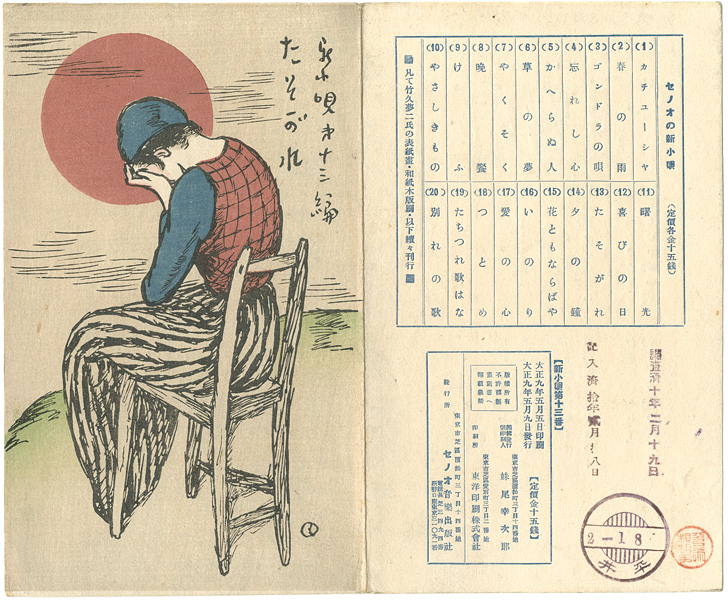 新小唄第十三編
たそがれ
セノオの新小唄
(定價各金十五錢)
(1) カチューシャ
(2) 春の雨
(3) ゴンドラの唄
(4) 忘れし心
(5) かへらぬ人
(6) 草の夢
(7) やくそく
(8) 晩鐘
(9) けふ
(10) やさしきもの
(11) 曙光
(12) 喜びの日
(13) たそがれ
(14) 夕の鐘
(15) 花ともならばや
(16) いのり
(17) 愛の心
(18) つとめ
(19) たちつれ歌はな
(20) 別れの歌
凡て竹久夢二氏の表紙畫・和紙木版刷・以下續々刊行
【新小唄第十三番】
【定價金十五錢】
大正九年五月五日印刷
大正九年五月九日發行
版權所有
不許複製
東京市芝區濱松町三丁目十四番地
妹尾幸次郎
印刷所
東洋印刷株式會社
東京市芝區濱松町三丁目十四番地
發行所
セノオ音樂出版社
調査済十年二月十九日
記入済拾年貳月拾八日
2-1 8